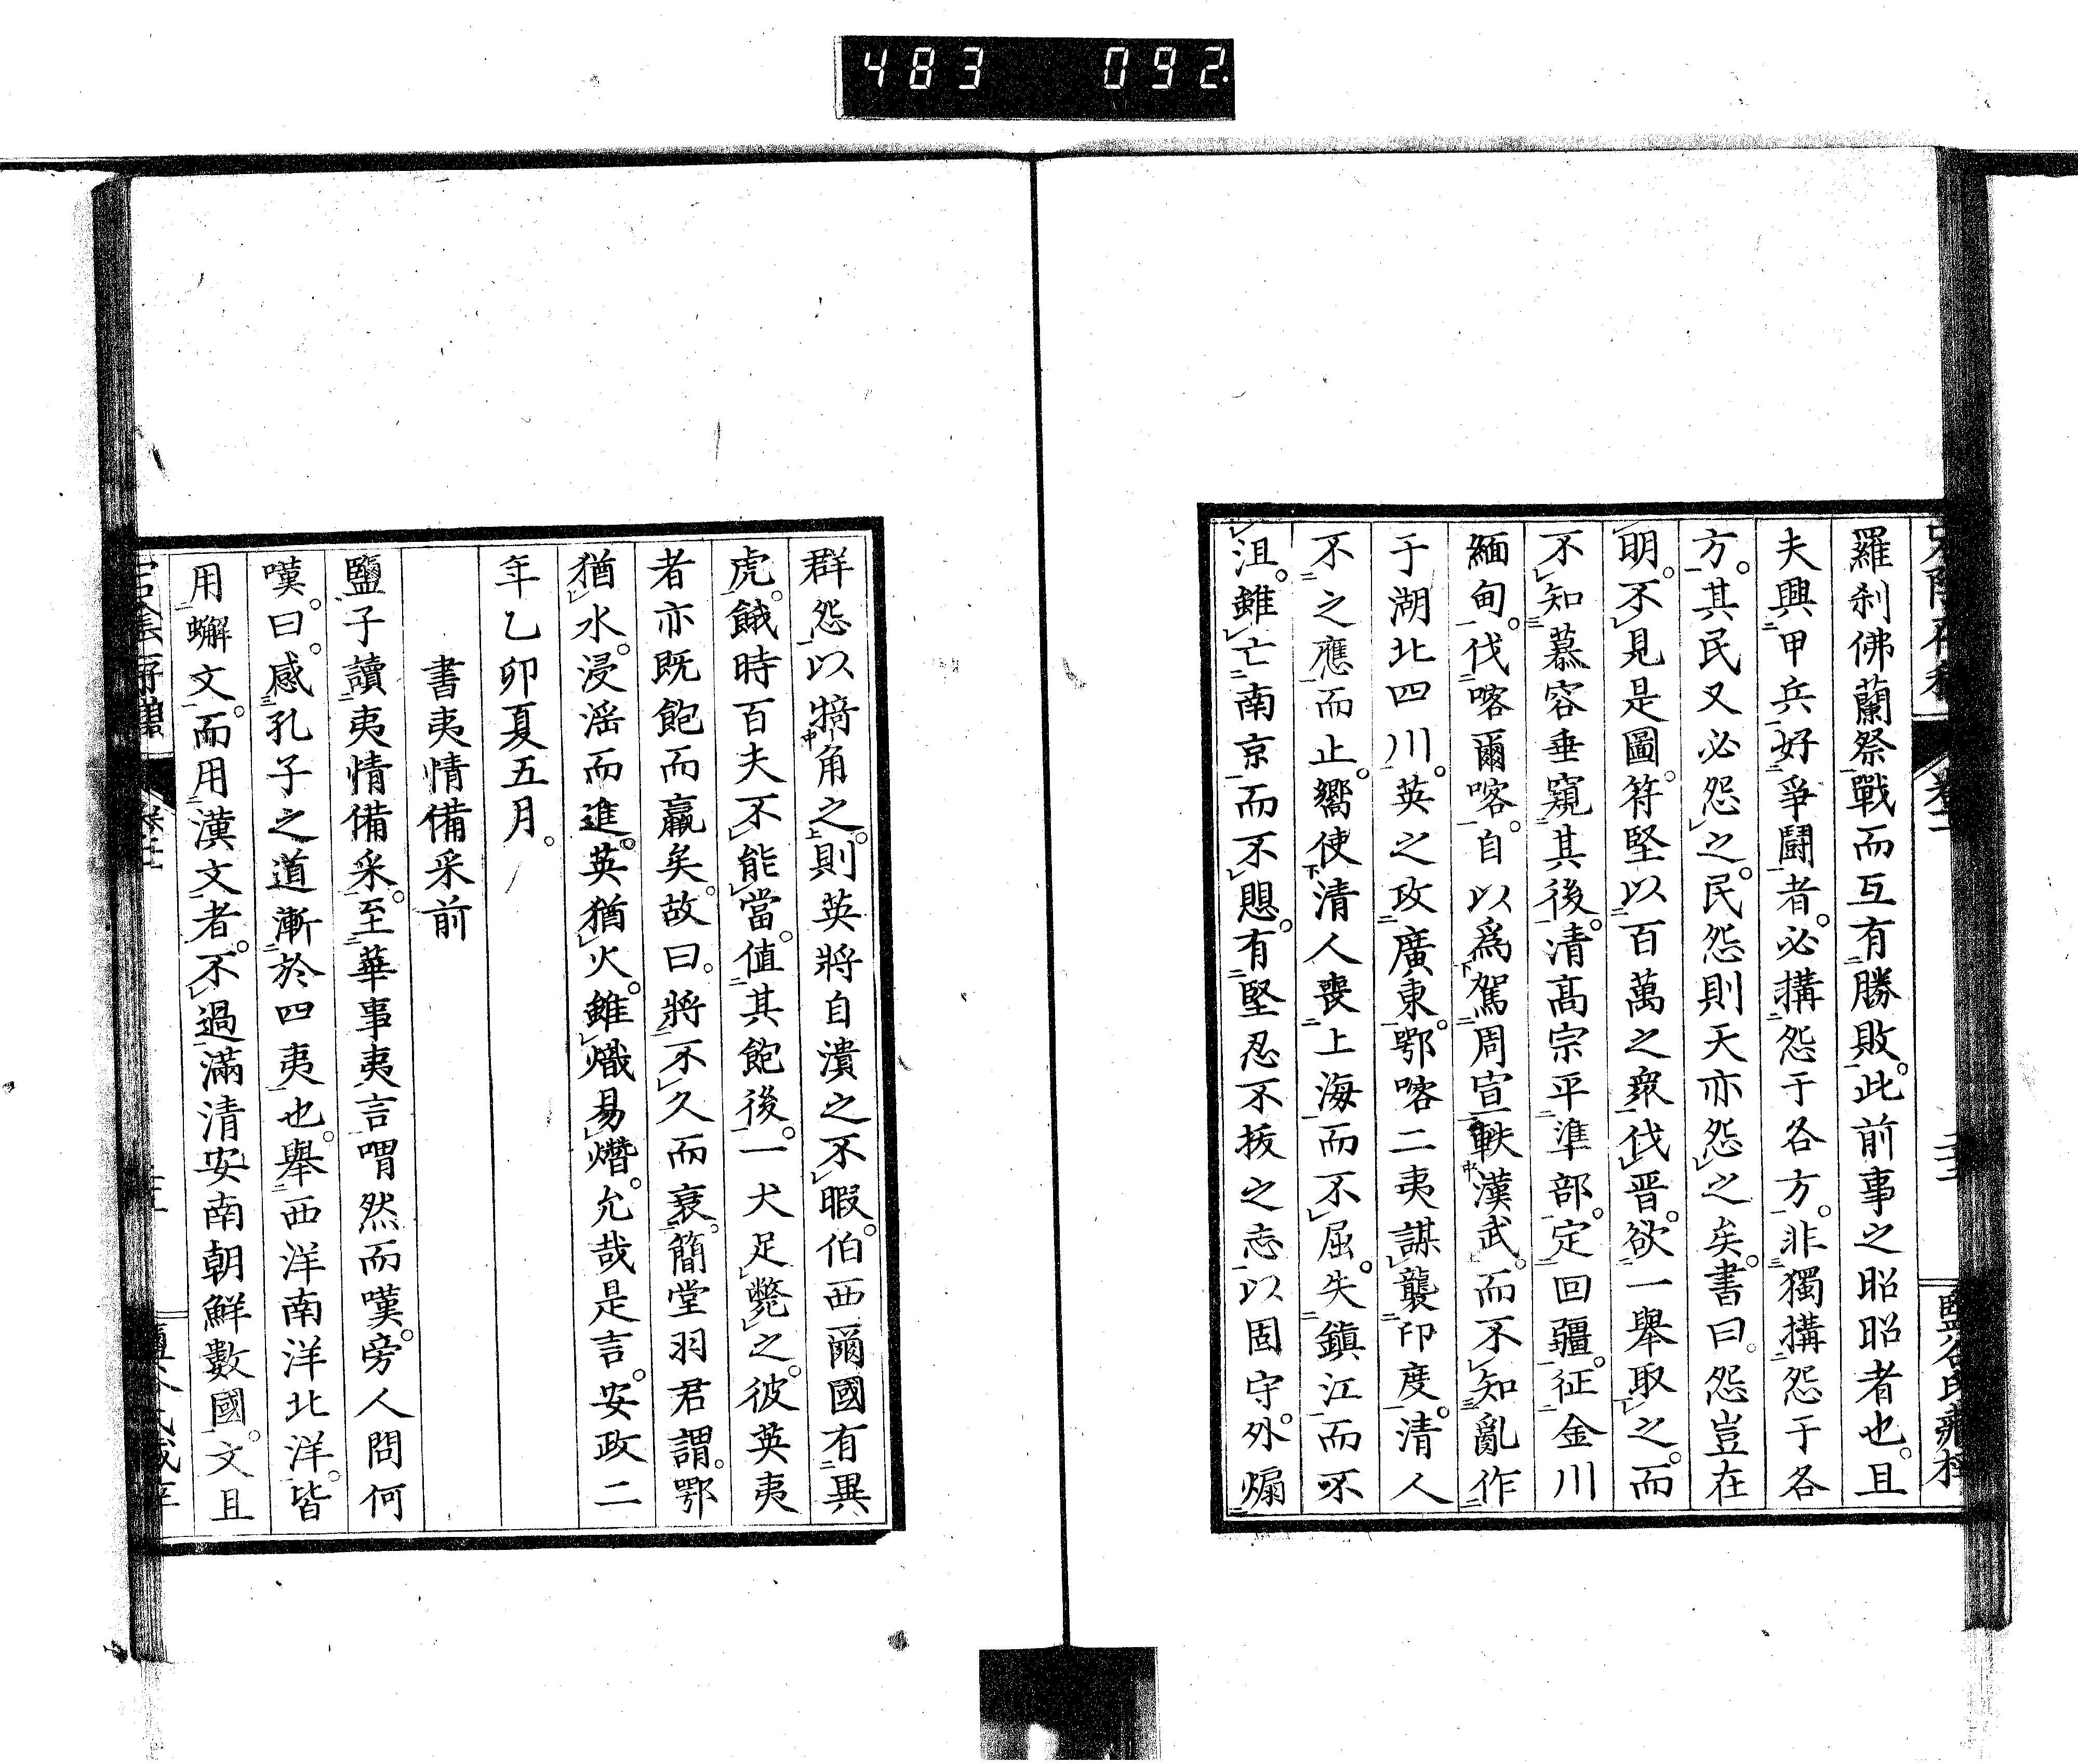 483 092
羅刹佛蘭祭戰而互有勝敗。此前事之昭昭者也。且
夫興甲兵好爭鬪者。必搆怨于各方。非獨搆怨于各
方。其民又必怨之。民怨則天亦怨之矣。書曰。怨豈在
明。不見是圖。苻堅以百萬之衆伐晋。欲一舉取之。而
不知慕容垂窺其後。清高宗平準部。定回疆。征金川
緬甸。伐喀爾喀。自以爲駕周宣軼漢武。而不知亂作
于湖北四川。英之攻廣東。鄂喀二夷謀襲印度。清人
不之應而止。嚮使清人喪上海而不屈。失鎮江而不
沮。雖亡南京而不愳。有堅忍不拔之志以固守。外煽
群怨以犄角之。則英將自潰之不暇。伯西爾國有異
虎。餓時百夫不能當。値其飽後。一犬足斃之。彼英夷
者亦既飽而贏矣。故曰。將不久而衰。簡堂羽君謂。鄂
猶水。浸滛而進。英猶火。雖熾易熸。允哉是言。安政二
年乙卯夏五月。
書夷情備采前
鹽子讀夷情備采。至華事夷言喟然而嘆。旁人問何
嘆。曰。感孔子之道漸於四夷也。舉西洋南洋北洋。皆
用蠏文。而用漢文者。不過滿清安南朝鮮數國。文且